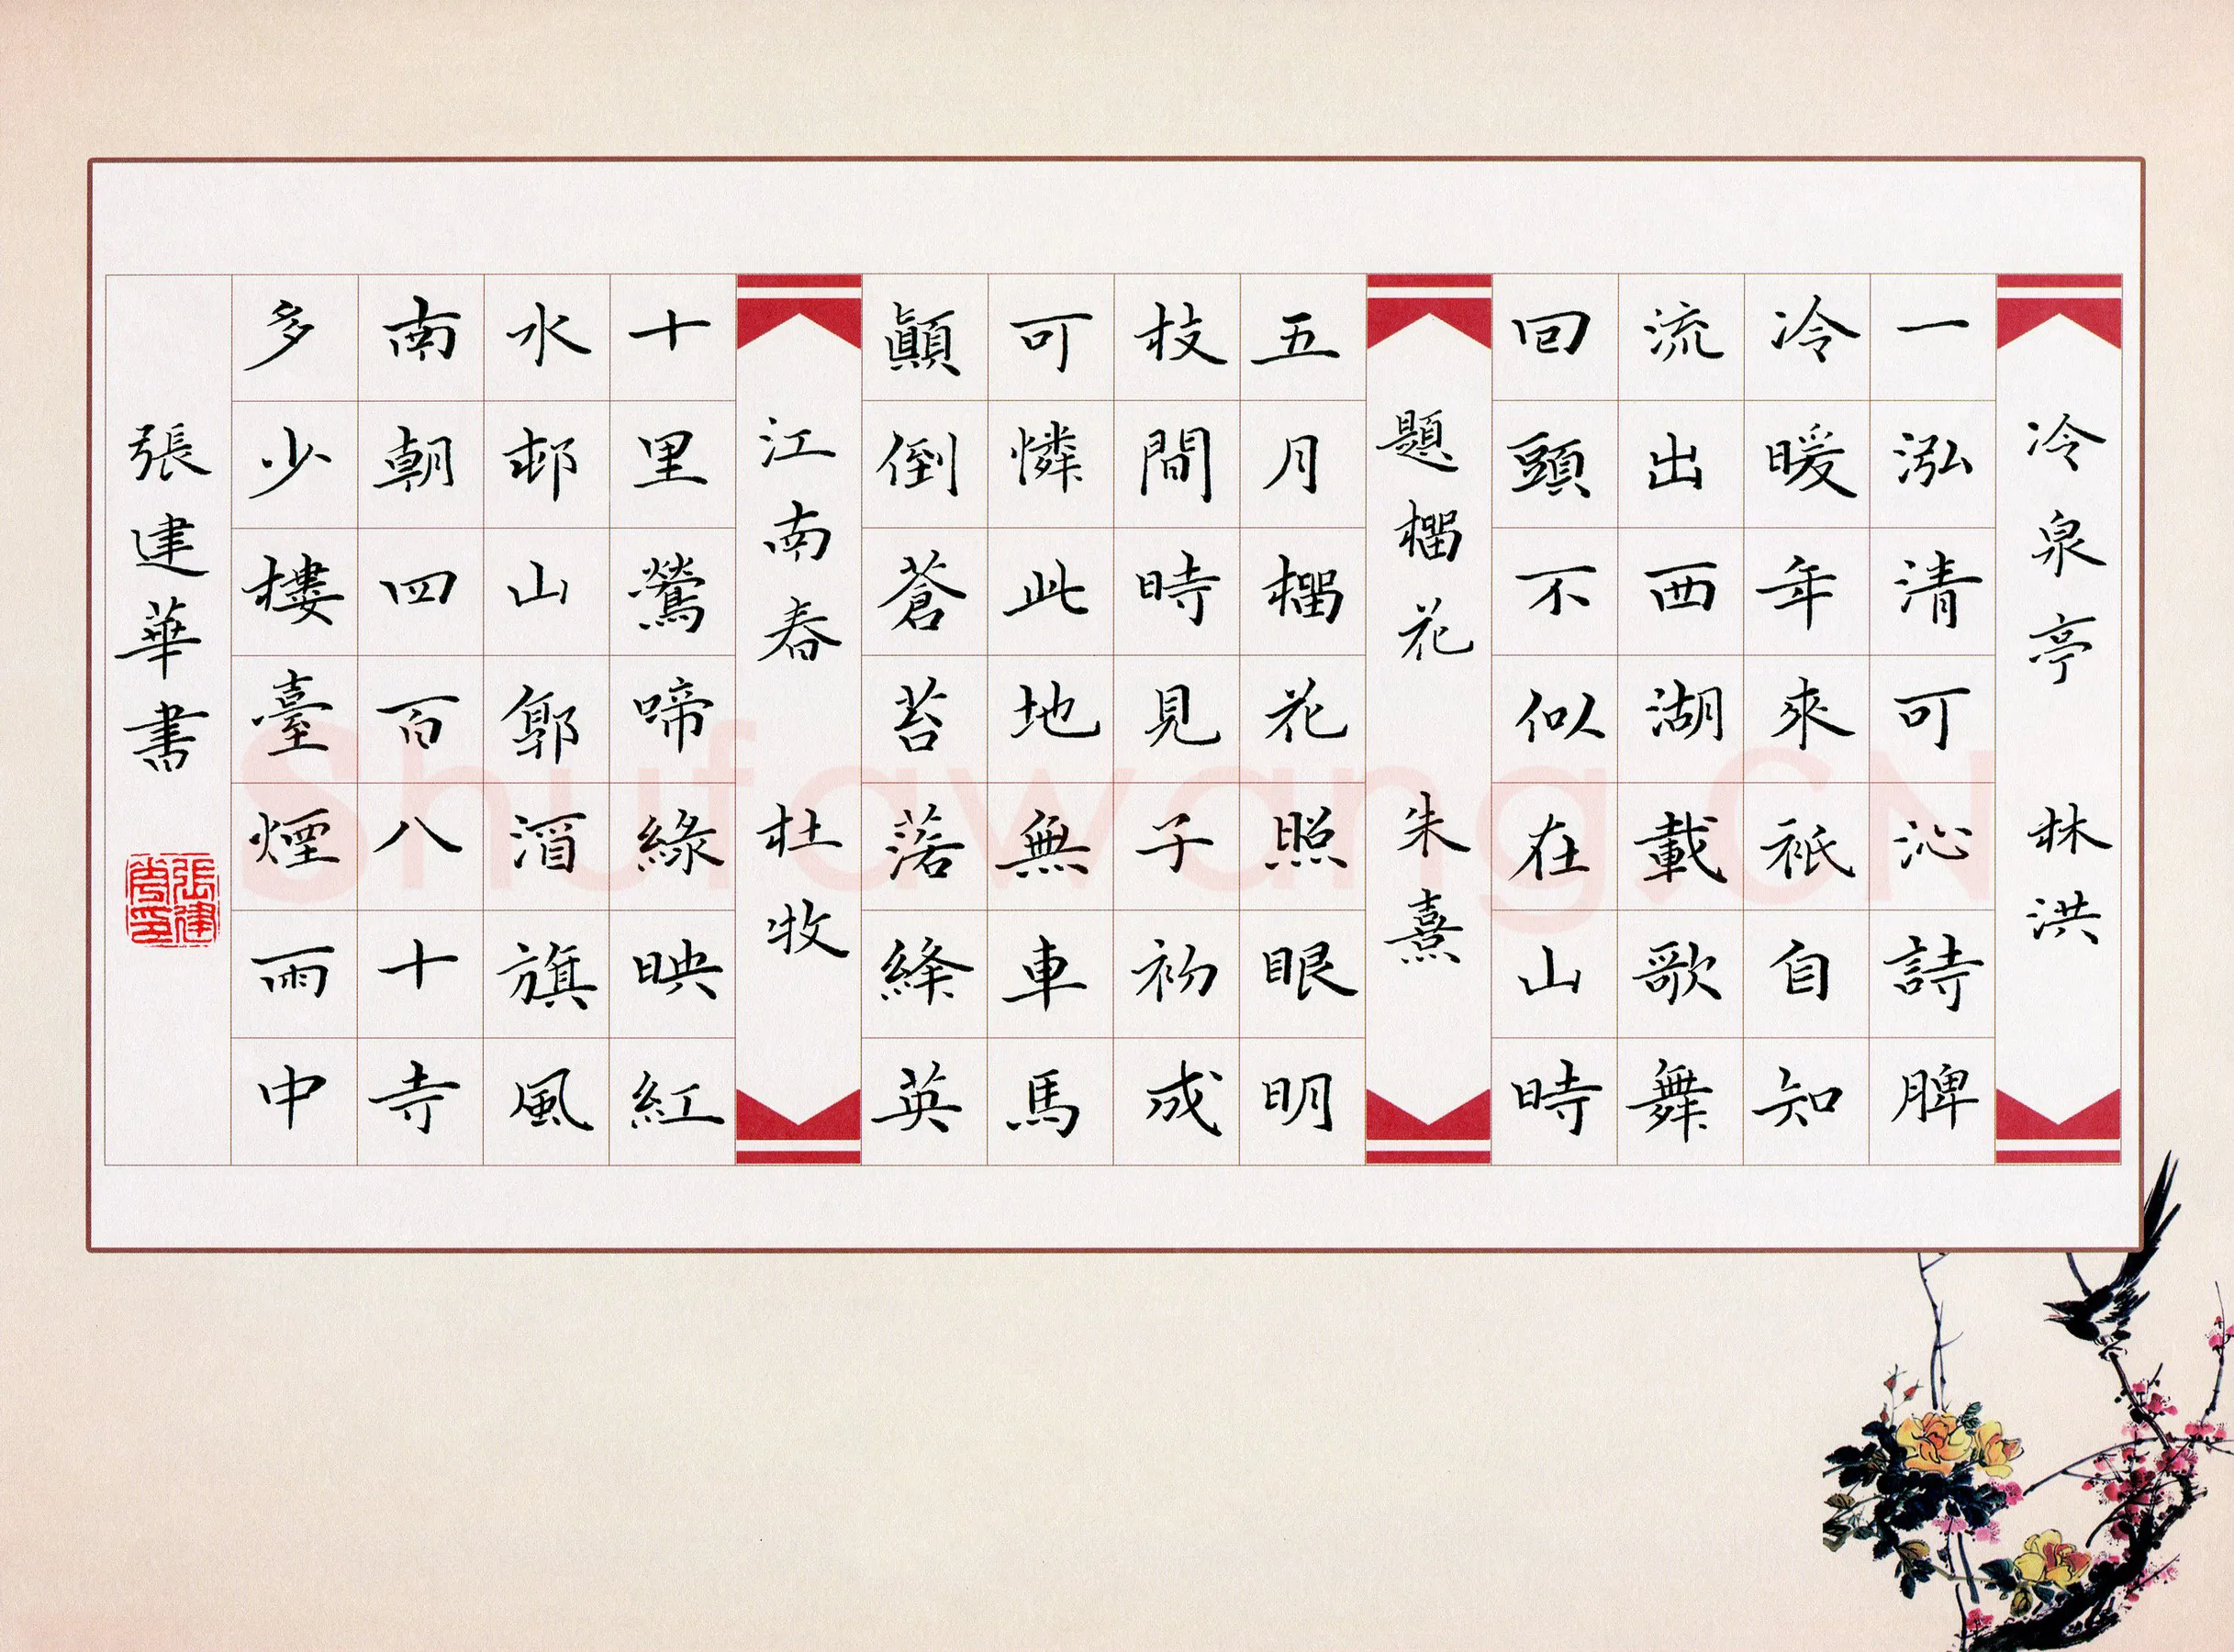 冷泉亭 林洪
一泓清可沁詩脾
冷暖年來衹自知
流出西湖載歌舞
回頭不似在山時
題榴花 朱熹
五月榴花照眼明
枝間時見子初成
可憐此地無車馬
顛倒蒼苔落絳英
江南春 杜牧
十里鶯啼綠映紅
水邨山郭酒旗風
南朝四百八十寺
多少樓臺煙雨中
張建華書
張建華印
Shufawang.CN